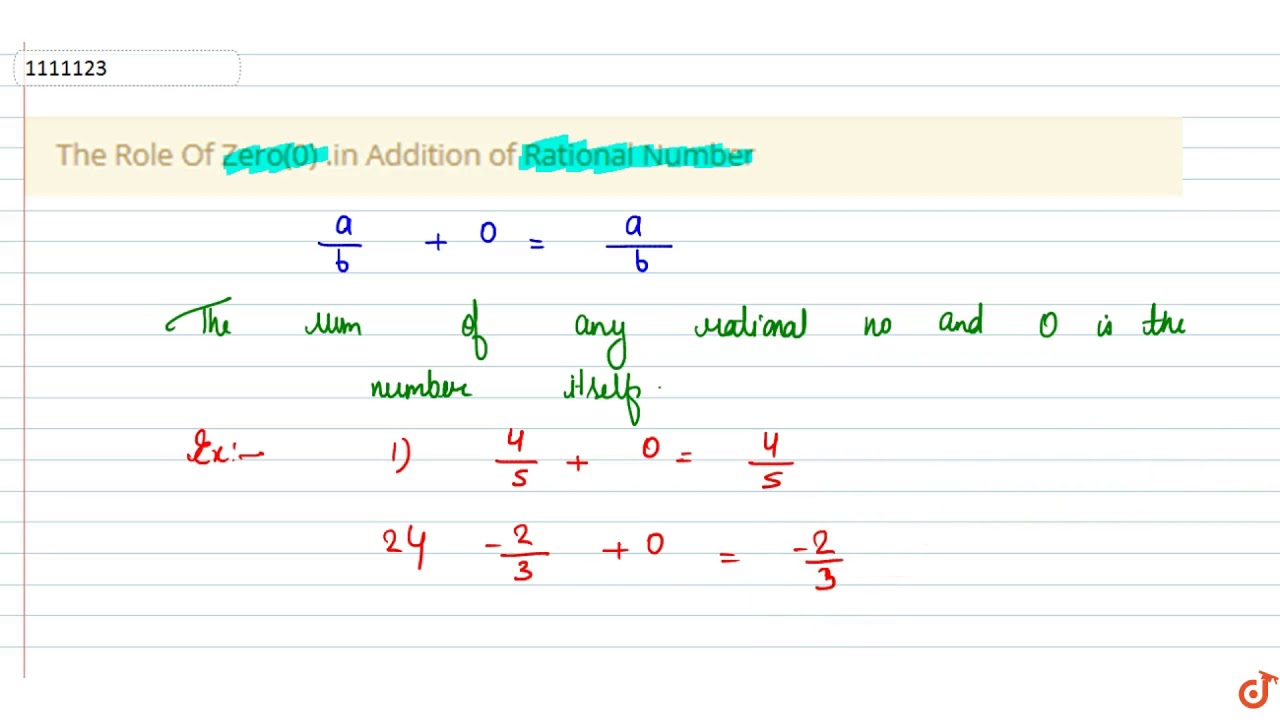 1111123
The Role Of Zero(0) .in Addition of Rational Number
a/b + 0 = a/b
The sum of any rational no and 0 is the
number itself.
Ex:- 1) 4/5 + 0 = 4/5
24 -2/3 + 0 = -2/3